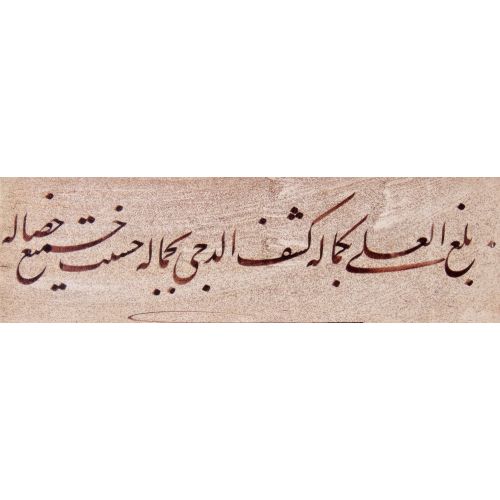 بلغ العلی بکماله کشف الدجی بجماله حسنت جمیع خصاله